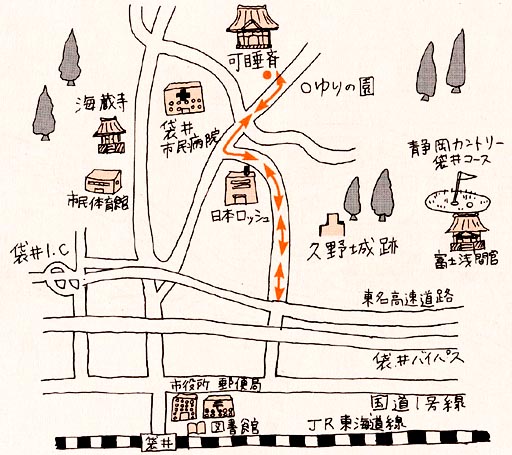 可睡斉
〇ゆりの園
海蔵寺
袋井
市民病院
静岡カントリー
袋井コース
市民体育館
日本ロッシュ
久野城跡
富士浅間宮
袋井I.C
東名高速道路
袋井バイパス
市役所 郵便局
国道1号線
図書館
JR東海道線
袋井